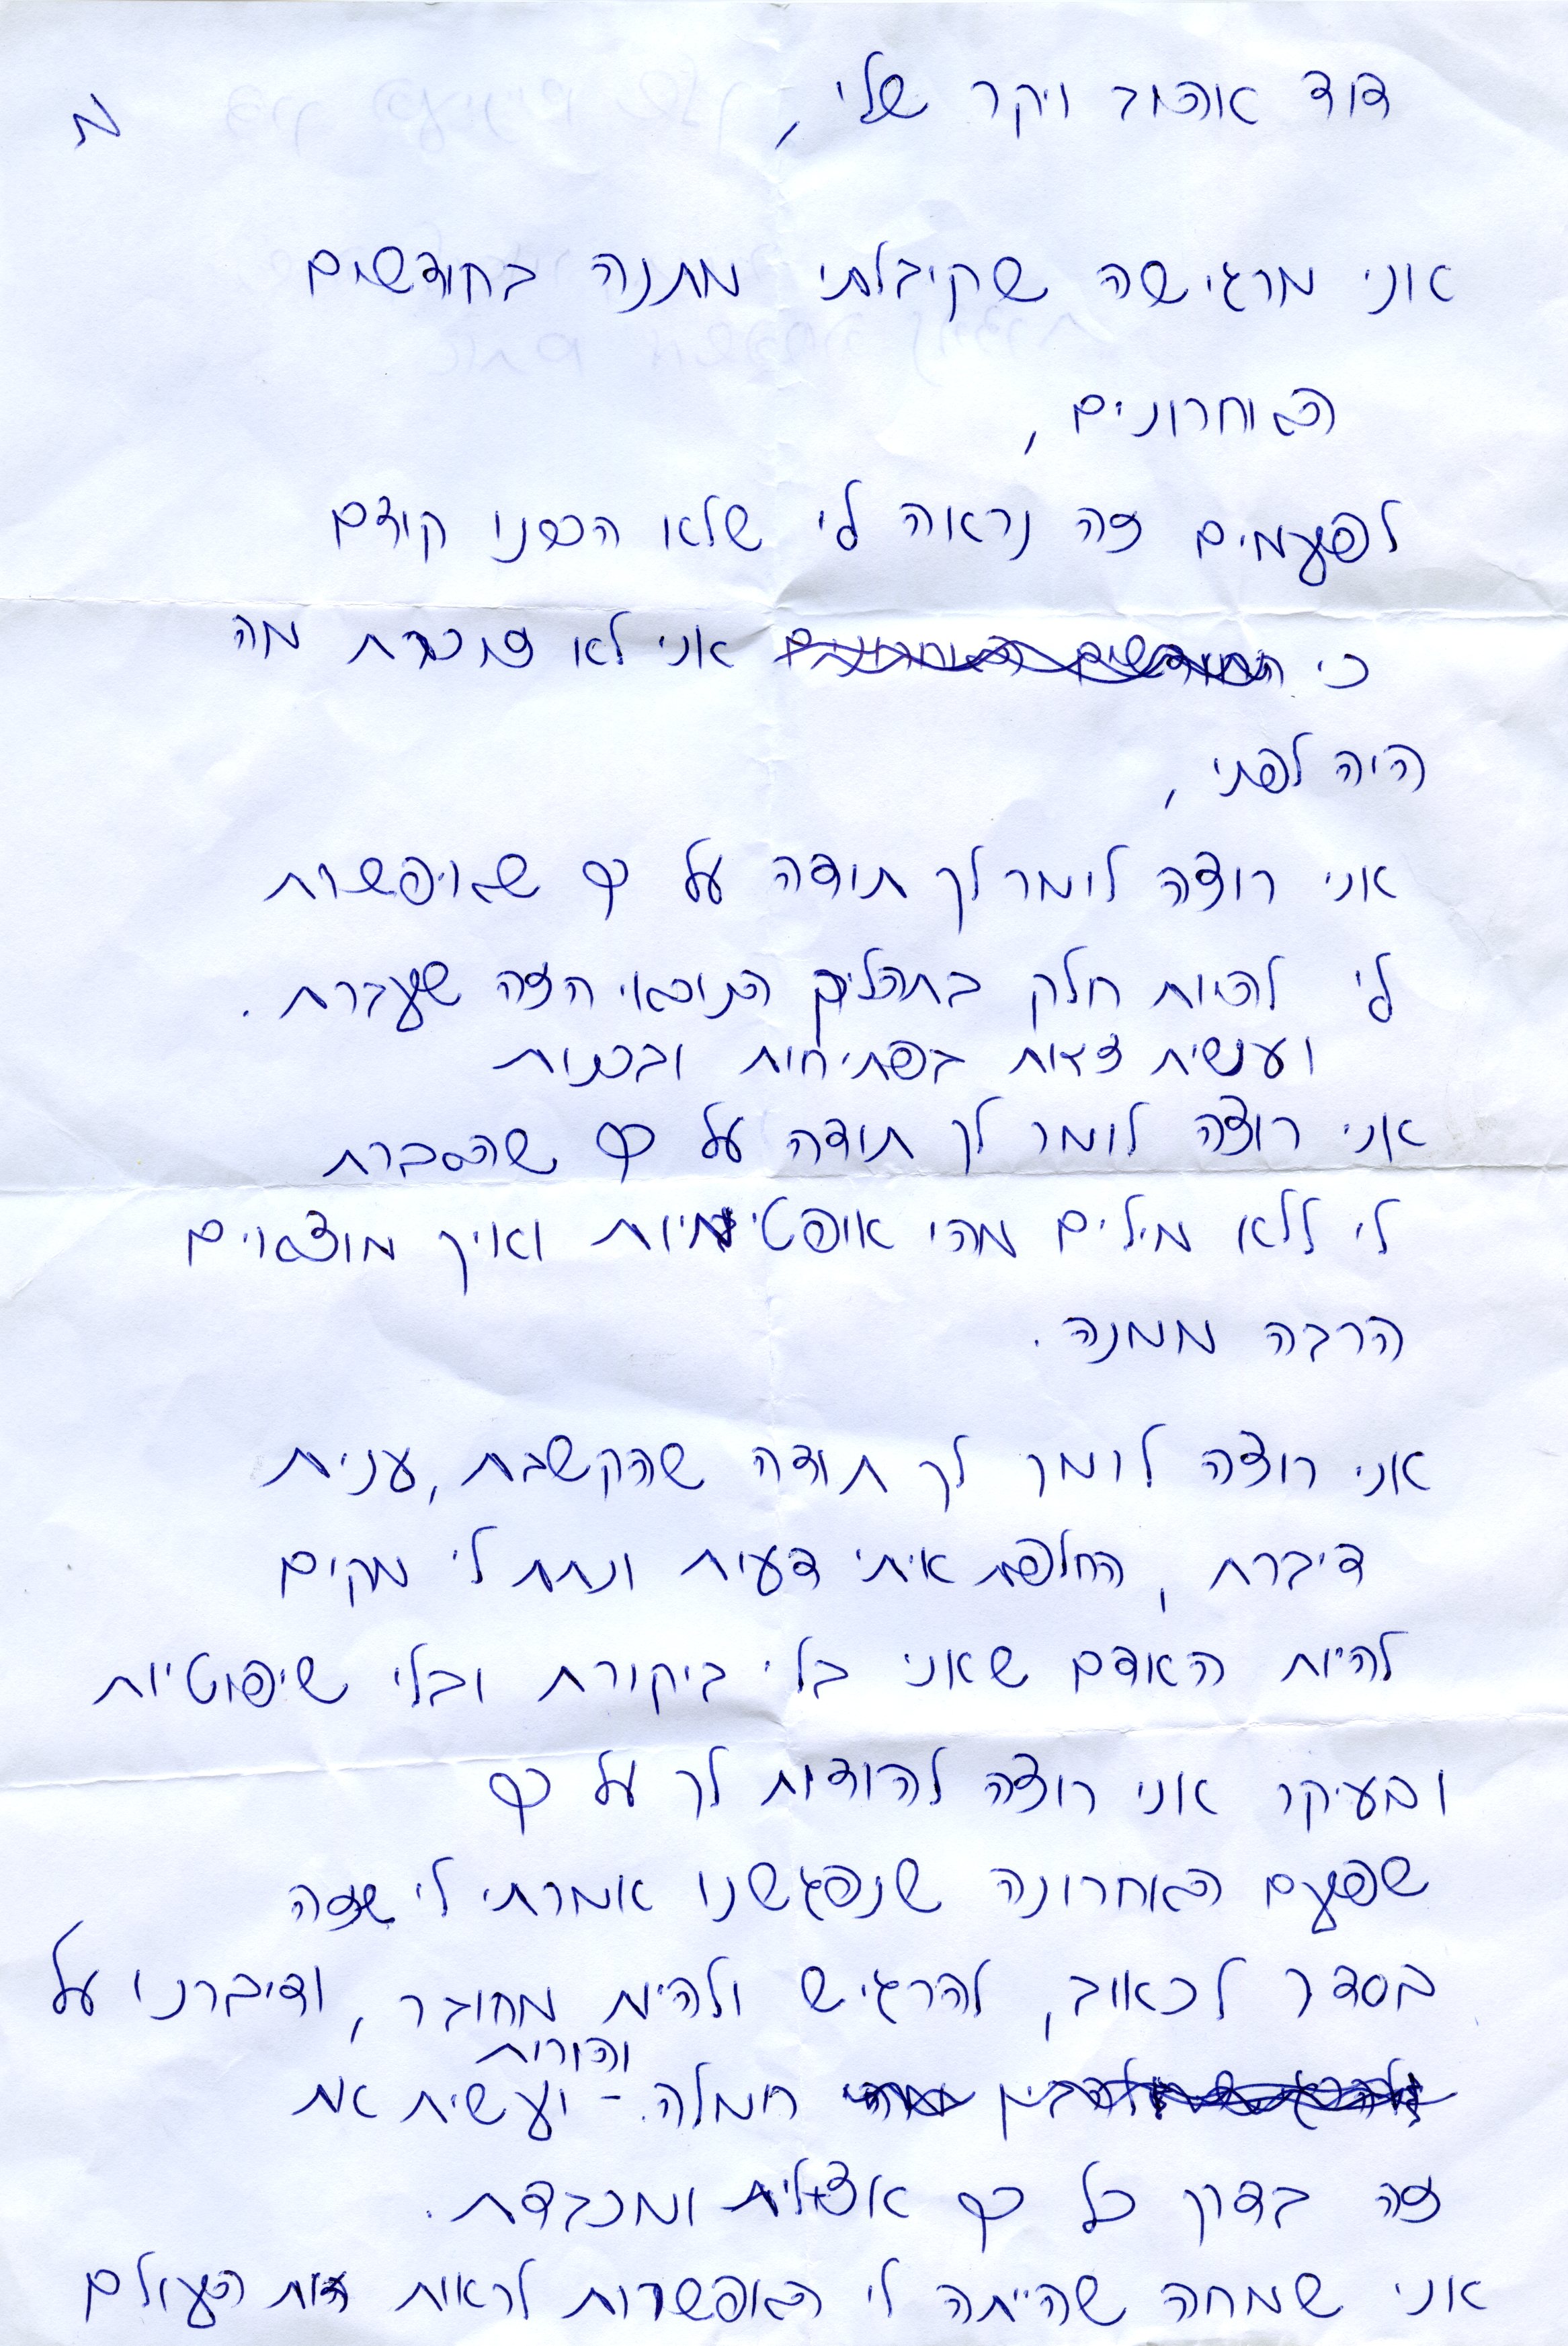 דוד אהוב ויקר שלי,
אני מרגישה שקיבלתי מתנה בחודשים
האחרונים,
לפעמים זה נראה לי שלא הכרנו קודם
כי אני לא זוכרת מה
היה לפני,
אני רוצה לומר לך תודה על כך שאיפשרת
לי להיות חלק בתהליך הנוראי הזה שעברת.
ועשית זאת בפתיחות ובכנות
אני רוצה לומר לך תודה על כך שהסברת
לי ללא מילים מהי אופטימיות ואיך מוצאים
הרבה ממנה.
אני רוצה לומר לך תודה שהקשבת, ענית
דיברת, החלפת איתי דעות ונתת לי מקום
להיות האדם שאני בלי ביקורת ובלי שיפוטיות
ובעיקר אני רוצה להודות לך על כך
שפעם האחרונה שנפגשנו אמרתי לי שזה
בסדר לכאוב, להרגיש ולהיות מחובר, ודיברנו על
והורות
חמלה. - ועשית את
זה בדרך כל כך אצילית ומכבדת.
אני שמחה שהייתה לי האפשרות לראות את העולם